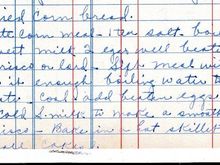 ried corn bread.
te corn meal - 1 tea salt. boi
eet milk 2 eggs well beate
risco or lard - Sift meal wi
it enough boiling water t
ate. cool. add beaten eggs
cold S. milk to make a smoot
isco - Bake in a hot skillet
cakes.